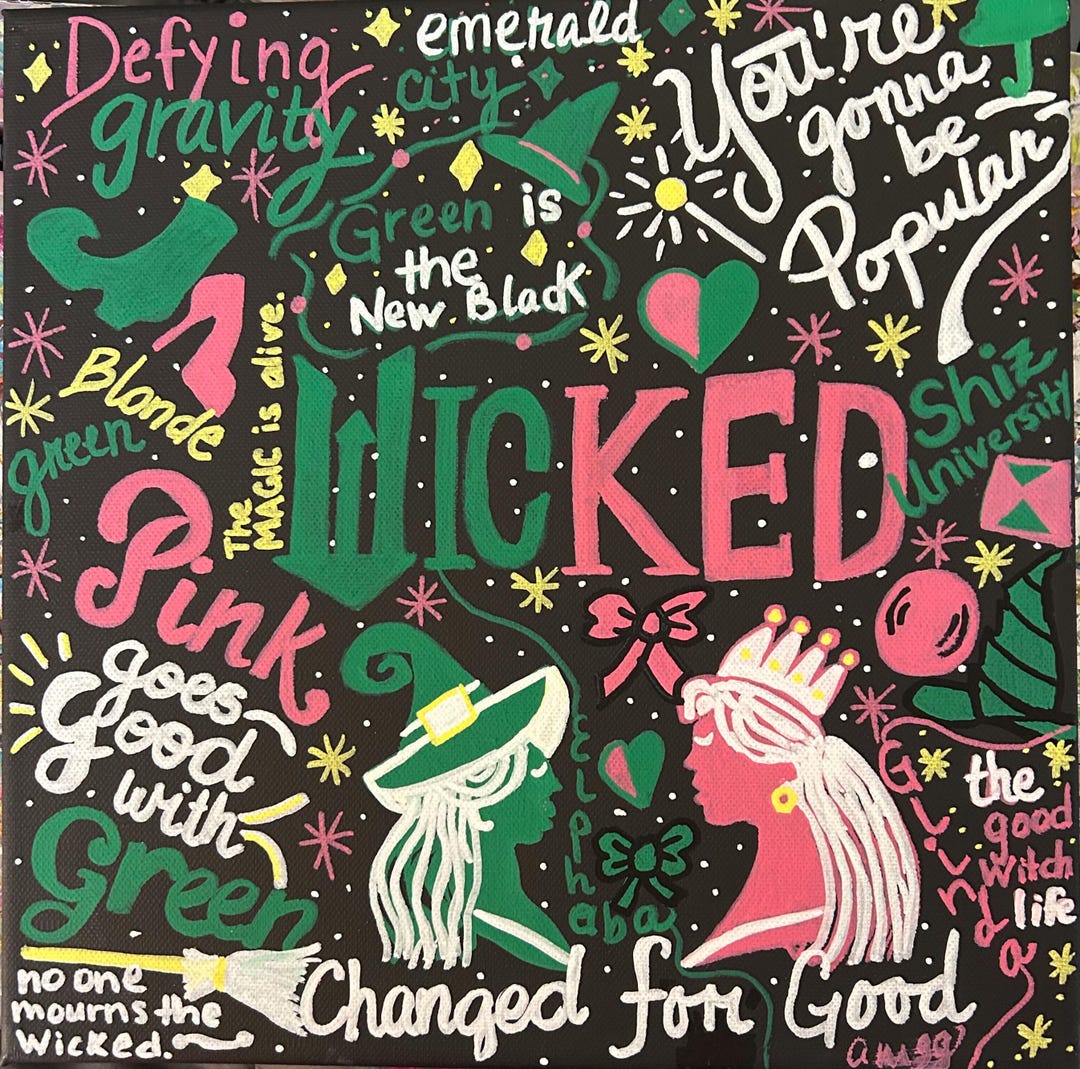 Defying
gravity
emerald
city
You're
gonna
be
Popular
Green is
the
New Black
Blonde
green
The
MAGIC is alive.
WICKED
Shiz
University
Pink
goes
Good
with
Green
Elphaba
Glinda
the
good
Witch
life
no one
mourns the
Wicked.
Changed for Good